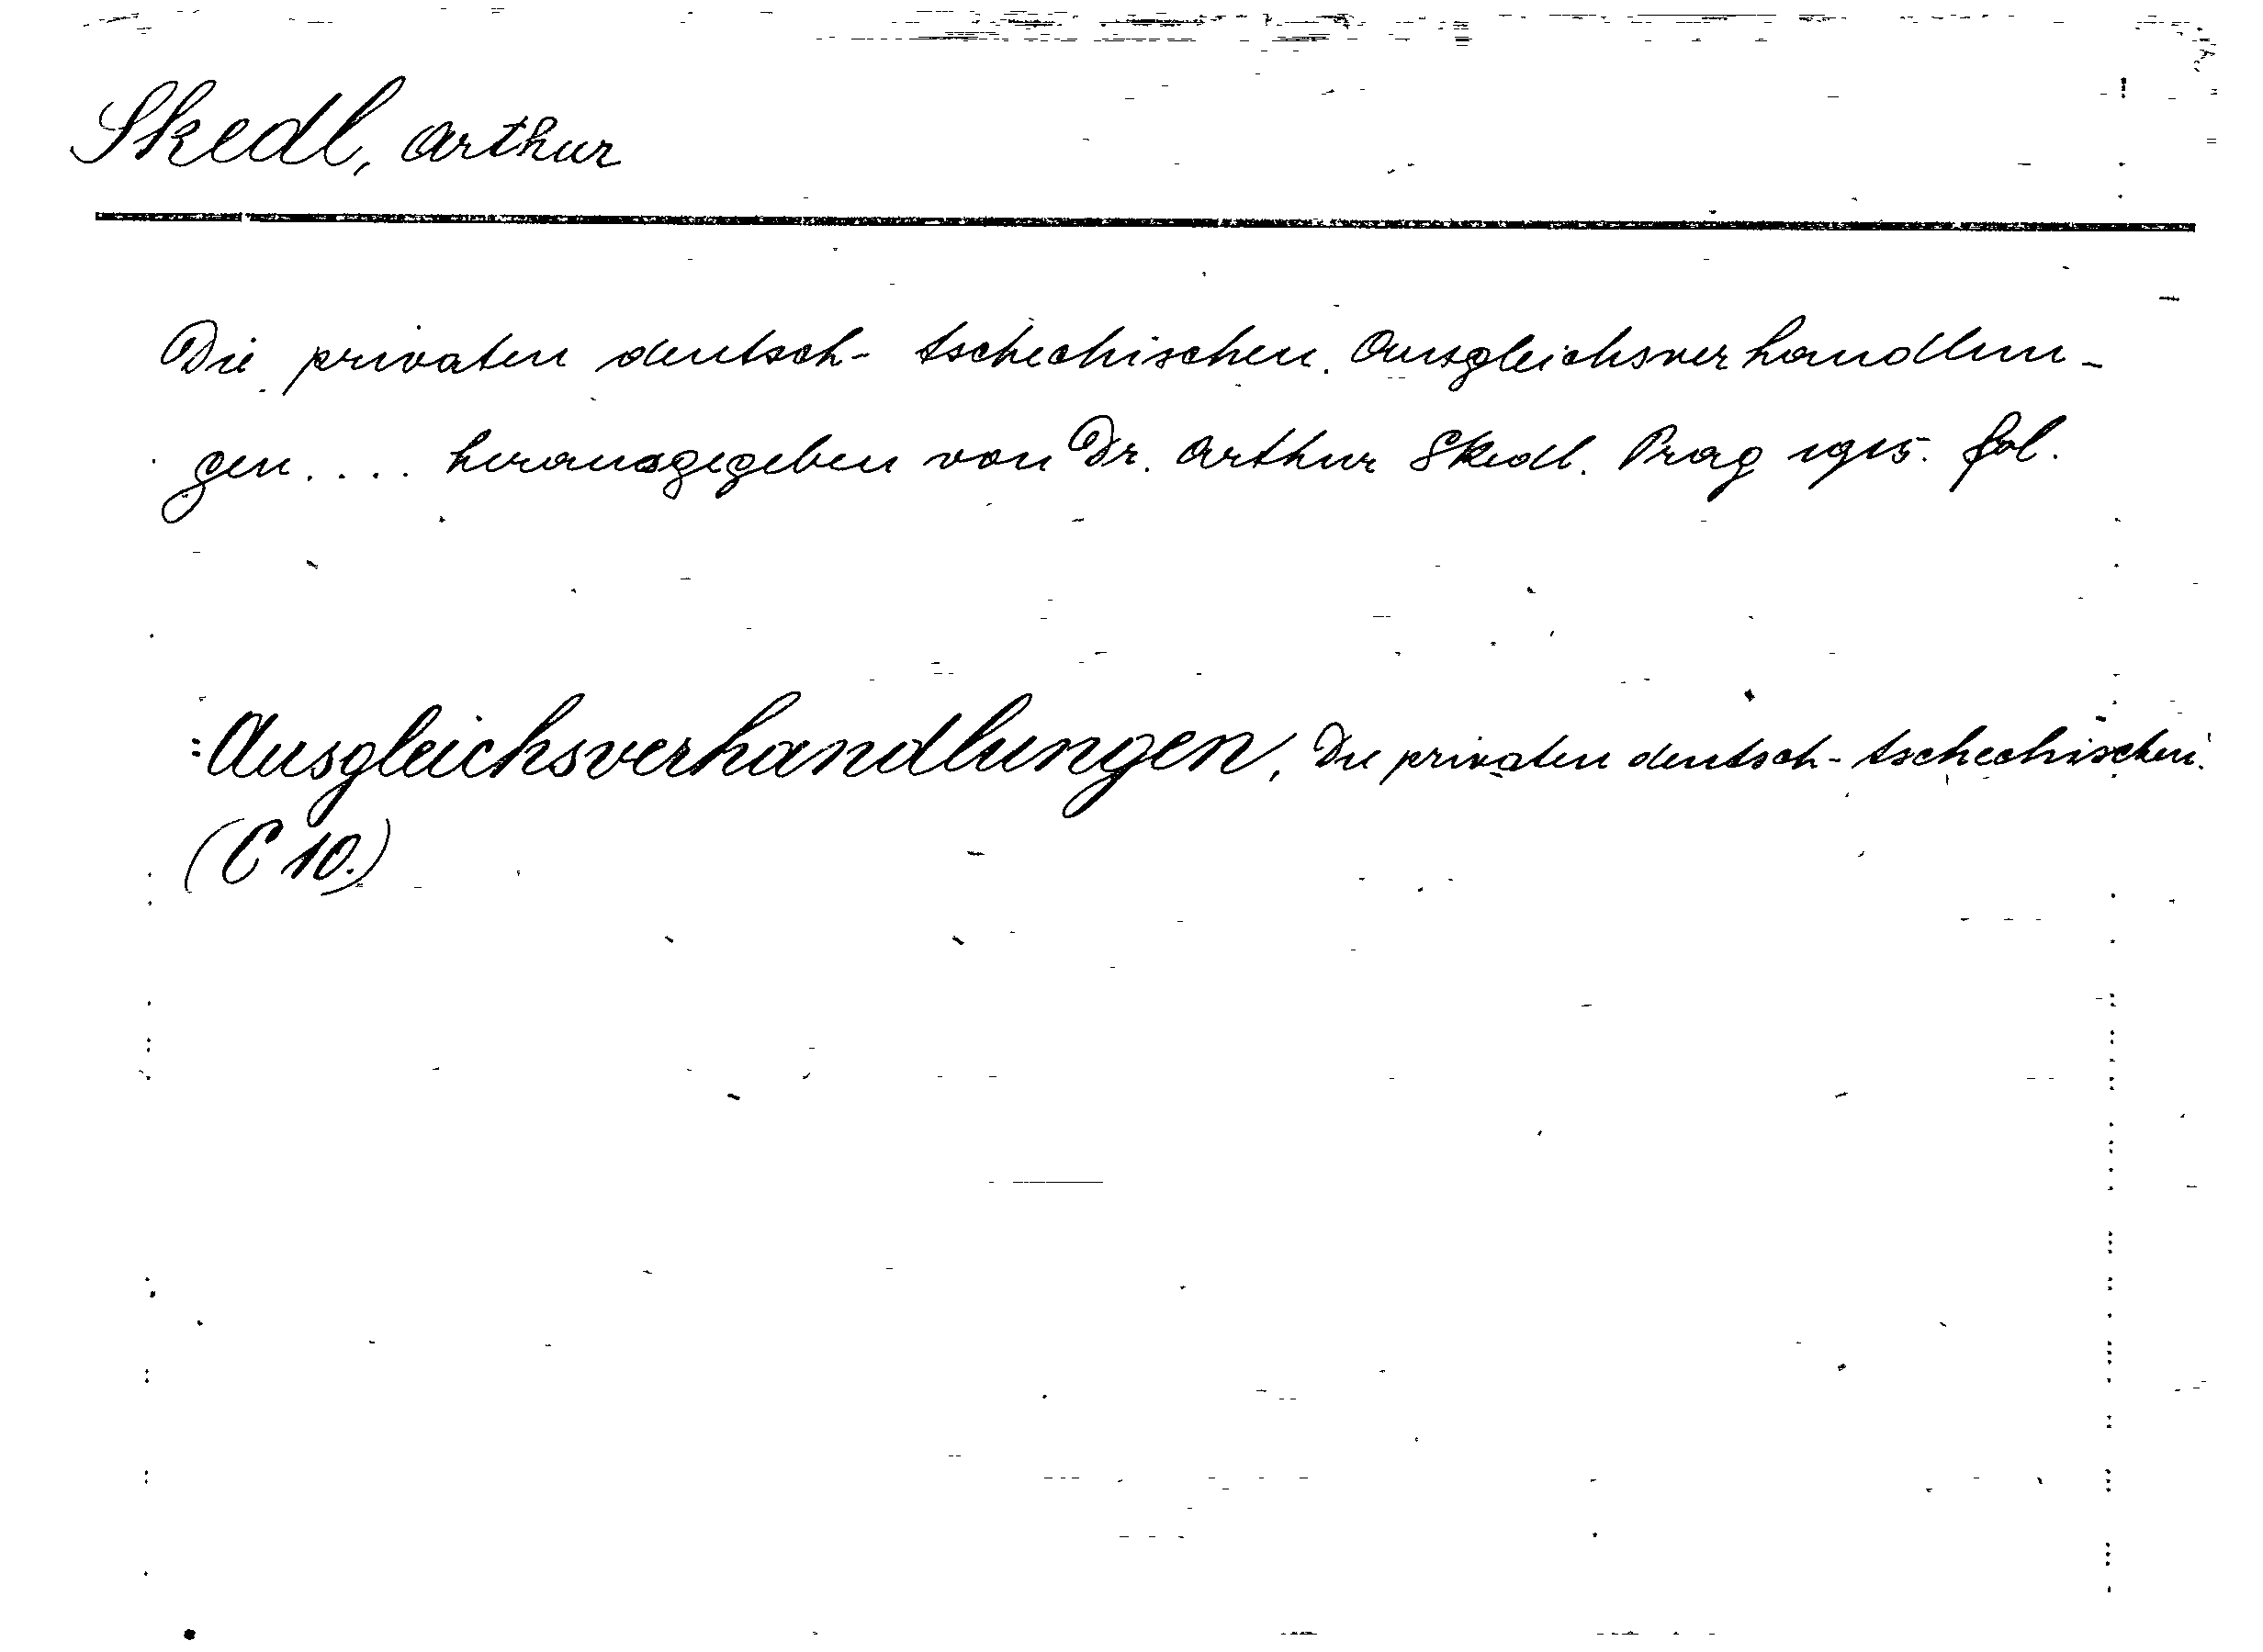 Skedl, Arthur
Die privaten deutsch-tschechischen Ausgleichsverhandlun-
gen.... herausgegeben von Dr. Arthur Skedl. Prag 1915. fol.
=Ausgleichsverhandlungen, Die privaten deutsch-tschechischen.
(C 10.)